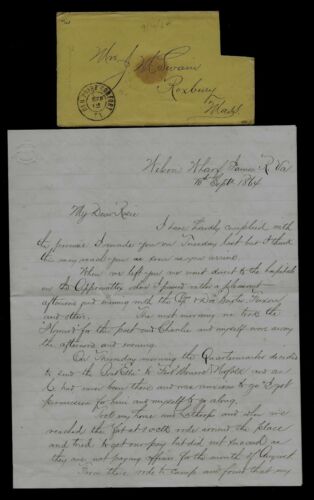 Mrs J M Swain
Roxbury
Mass
OLD POINT COMFORT
SEP
Wilson Wharf James R Va
Sept 1864
My Dear Rosie
I have hardly complied with
the promise I made you on Tuesday last but I think
this may reach you as soon as you arrive
When we left you we went direct to the hospitals
on the Appomattox where I passed rather a pleasant
afternoon and evening with the
and others. The next morning we took the
for the post and Charlie and myself were away
the afternoon and evening.
On Thursday morning the Quartermaster decided
to send the to Fort Monroe Norfolk and as
I had never been there and was anxious to go I got
permission for him and myself to go along.
Took my horse and when we
reached the Fort at rode around the place
and tried to get our pay but did not succeed as
they are not paying officers for the month of August
From there rode to camp and found that my